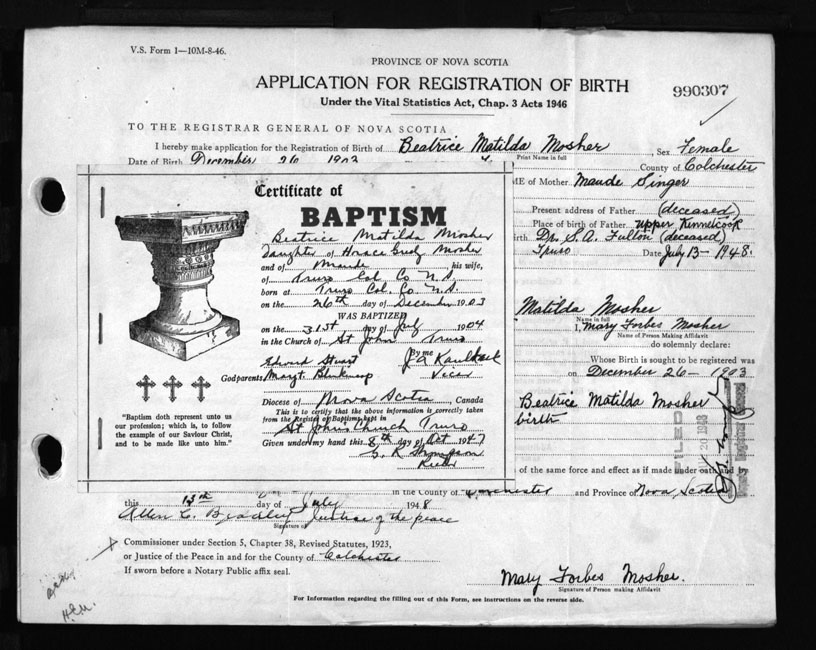 V.S. Form 1—10M-8-46.
PROVINCE OF NOVA SCOTIA
APPLICATION FOR REGISTRATION OF BIRTH
990307
Under the Vital Statistics Act, Chap. 3 Acts 1946
TO THE REGISTRAR GENERAL OF NOVA SCOTIA
I hereby make application for the Registration of Birth of Beatrice Matilda Mosher, Sex Female
Print Name in full
Date of Birth December 26 1903
County of Colchester
ME of Mother Maude Singer
Present address of Father (deceased)
Place of birth of Father Upper Kennetcook
irth Dr. S.A. Fulton (deceased)
Truro Date July 13- 1948.
Certificate of
BAPTISM
Beatrice Matilda Mosher
Daughter of Horace Mosher
and of Maude his wife,
of Truro Col Co N.S
born at Truro Col. Co. N.S
on the 26th day of December 1903
WAS BAPTIZED
on the 31st day of July 1904
in the Church of St John Truro
By me
Edward Stuart J.A. Kaulback
Godparents Margt. Vicar
Diocese of Nova Scotia, Canada
This is to certify that the above information is correctly taken
from the Register of Baptisms kept in
St Johns Church Truro
Given under my hand this 8th day of Oct 1947
G. R. Thompson
Rector
"Baptism doth represent unto us
our profession; which is, to follow
the example of our Saviour Christ,
and to be made like unto him."
Matilda Mosher
Name in full
I, Mary Forbes Mosher
Name of Person Making Affidavit
do solemnly declare:
Whose Birth is sought to be registered was
on December 26 - 1903
Beatrice Matilda Mosher
birth
FILED
1948
of the same force and effect as if made under oath and by
in the County of Colchester and Province of Nova Scotia
this 13th day of July 1948
Allen C. Bradley Justice of the peace
Signature of
Commissioner under Section 5, Chapter 38, Revised Statutes, 1923,
or Justice of the Peace in and for the County of Colchester
If sworn before a Notary Public affix seal.
Mary Forbes Mosher.
Signature of Person making Affidavit
For Information regarding the filling out of this Form, see instructions on the reverse side.